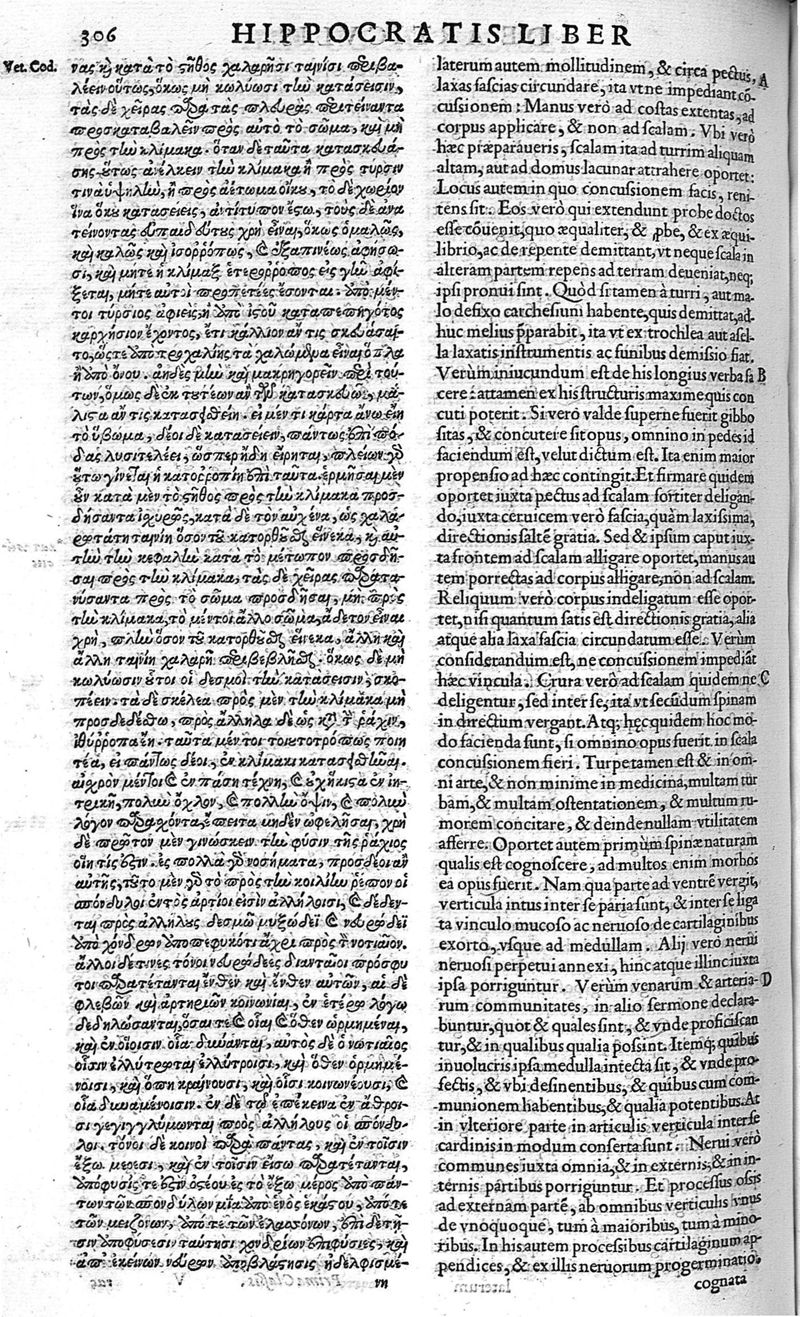 306
HIPPOCRATIS LIBER
Vet. Cod.
νας κὶ κατὰ τὸ στῆθος χαλαρῇσι ταινίσι περιβα-
λέειν οὕτως, ὅκως μὴ κωλύωσι τὴν κατάσεισιν,
τὰς δὲ χεῖρας παρὰ τὰς πλευρὰς περιτείναντα
προσκαταβαλεῖν πρὸς αὐτὸ τὸ σῶμα, καὶ μὴ
πρὸς τὴν κλίμακα. ὅταν δὲ ταῦτα κατασκευά-
σῃς οὕτως ἀνέλκειν τὴν κλίμακα ἢ πρὸς τύρσιν
τινὰ ὑψηλὴν, ἢ πρὸς ἀέτωμα οἴκου, τὸ δὲ χωρίον
ἵνα ὅκου κατασείεις, ἀντίτυπον ἔστω, τοὺς δὲ ἀνα
τείνοντας εὐπαιδεύτους χρὴ εἶναι, ὅκως ὁμαλῶς,
καὶ καλῶς καὶ ἰσορρόπως, καὶ ἐξαπινέως ἀφήσω-
σι, καὶ μήτε ἡ κλίμαξ ἑτερόρροπος εἰς γῆν ἀφί-
ξεται, μήτε αὐτοὶ προπετέες ἔσονται. ἀπὸ μέν-
τοι τύρσιος ἀφιεὶς, ἢ ὑπὸ ἱστοῦ καταπεπηγότος
καρχήσιον ἔχοντος, ἔτι κάλλιον ἄν τις σκευάσαι-
το, ὥστε ἀπὸ τροχαλίης τὰ χαλώμενα εἶναι ὅπλα
ἢ ἀπὸ ὄνου. ἀηδὲς μὴν καὶ μακρηγορεῖν περὶ τού-
των, ὅμως δὲ ἐκ τουτέων ἂν τῶν κατασκευῶν, μά-
λιστα ἄν τις κατασεισθείη. εἰ μέν τι κάρτα ἄνω εἴη
τὸ ὕβωμα, δέοι δὲ κατασείειν, πάντως ἐπὶ πό-
δας λυσιτελέει, ὥσπερ ἤδη εἴρηται, πλείων γὰρ
οὕτω γίνεται ἡ καταρροπίη ἐπὶ ταῦτα. ἑρμῆσαι μὲν
οὖν κατὰ μὲν τὸ στῆθος πρὸς τὴν κλίμακα προσ-
δήσαντα ἰσχυρῶς, κατὰ δὲ τὸν αὐχένα, ὡς χαλα-
ρωτάτῃ ταινίῃ ὅσον τοῦ κατορθοῦσθαι εἵνεκα, κὶ αὐ-
τὴν τὴν κεφαλὴν κατὰ τὸ μέτωπον προσδῆ-
σαι πρὸς τὴν κλίμακα, τὰς δὲ χεῖρας παρατα-
νύσαντα πρὸς τὸ σῶμα προσδῆσαι, μὴ πρὸς
τὴν κλίμακα, τὸ μέντοι ἄλλο σῶμα, ἄδετον εἶναι
χρὴ, πλὴν ὅσον τοῦ κατορθοῦσθαι εἵνεκα, ἄλλῃ καὶ
ἄλλῃ ταινίῃ χαλαρῇ περιβεβλῆσθαι. ὅκως δὲ μὴ
κωλύωσιν οὗτοι οἱ δεσμοὶ τὴν κατάσεισιν, σκο-
πέειν. τὰ δὲ σκέλεα πρὸς μὲν τὴν κλίμακα μὴ
προσδεδέσθω, πρὸς ἄλληλα δὲ ὡς κατὰ τὴν ῥάχιν,
ἰθύρροπα ᾖ. ταῦτα μέντοι τοιουτοτρόπως ποιη
τέα, εἰ πάντως δέοι, ἐν κλίμακι κατασεισθῆναι.
αἰσχρὸν μέντοι καὶ ἐν πάσῃ τέχνῃ, καὶ οὐχ ἥκιστα ἐν ἰη-
τρικῇ, πολὺν ὄχλον, καὶ πολλὴν ὄψιν, καὶ πολὺν
λόγον παρασχόντα, ἔπειτα μηδὲν ὠφελῆσαι, χρὴ
δὲ πρῶτον μὲν γινώσκειν τὴν φύσιν τῆς ῥάχιος
οἵη τίς ἐστιν. ἐς πολλὰ γὰρ νοσήματα, προσδέοι ἂν
αὐτῆς, τοῦτο μὲν γὰρ τὸ πρὸς τὴν κοιλίην ῥέπον οἱ
σπόνδυλοι ἐντὸς ἄρτιοί εἰσιν ἀλλήλοισι, καὶ δέδεν-
ται πρὸς ἀλλήλους δεσμῷ μυξώδεϊ καὶ νευρώδεϊ
ἀπὸ χόνδρων ἀποπεφυκότι ἄχρι πρὸς τὸν νοτιαῖον.
ἄλλοι δέ τινες τόνοι νευρώδεες διανταῖοι πρόσφυ
τοι παρατέτανται ἔνθεν καὶ ἔνθεν αὐτῶν, αἱ δὲ
φλεβῶν καὶ ἀρτηριῶν κοινωνίαι, ἐν ἑτέρῳ λόγῳ
δεδηλώσανται, ὅσαι τε καὶ οἷαι καὶ ὅθεν ὡρμημέναι,
καὶ ἐν οἵοισιν οἷα δύνανται, αὐτὸς δὲ ὁ νωτιαῖος
οἷσιν ἐλλύτρωται ἐλλύτροισι, καὶ ὅθεν ὁρμημέ-
νοισι, καὶ ὅπη κραίνουσι, καὶ οἷσι κοινωνέουσι, καὶ
οἷα δυναμένοισιν. ἐν δὲ τῷ ἐπέκεινα ἐν ἄθροι-
σι γεγιγγλύμωνται πρὸς ἀλλήλους οἱ σπόνδυ-
λοι. τόνοι δὲ κοινοὶ παρὰ πάντας, καὶ ἐν τοῖσιν
ἔξω μέρεσι, καὶ ἐν τοῖσιν εἴσω παρατέτανται,
ἀπόφυσίς τε ἐστὶν ὀστέου ἐς τὸ ἔξω μέρος ἀπὸ πάν-
των τῶν σπονδύλων μία ἀπὸ ἑνὸς ἑκάστου, ἀπό τε
τῶν μειζόνων, ἀπό τε τῶν ἐλασσόνων, ἐπὶ δὲ τῇ-
σιν ἀποφύσεσιν ταύτῃσι χονδρίων ἐπιφύσιες, καὶ
ἀπ' ἐκείνων νεύρων ἀποβλάστησις ἠδελφισμέ-
νη
laterum autem mollitudinem, & circa pectus, A
laxas fascias circundare, ita vt ne impediant cō-
cussionem: Manus verò ad costas extentas, ad
corpus applicare, & non ad scalam. Vbi verò
hæc præparaueris, scalam ita ad turrim aliquam
altam, aut ad domus lacunar attrahere oportet:
Locus autem in quo concussionem facis, reni-
tens sit. Eos verò qui extendunt probe doctos
esse cōuenit, quo æqualiter, & ꝓbe, & ex æqui-
librio, ac de repente demittant, vt neque scala in
alteram partem repens ad terram deueniat, neq;
ipsi pronui sint. Quòd si tamen à turri, aut ma-
lo defixo carchesium habente, quis demittat, ad-
huc melius p̄parabit, ita vt ex trochlea aut asel-
la laxatis instrumentis ac funibus demissio fiat.
Verùm iniucundum est de his longius verba fa B
cere: attamen ex his structuris maxime quis con
cuti poterit. Si verò valde superne fuerit gibbo
sitas, & concutere sit opus, omnino in pedes id
faciendum est, velut dictum est. Ita enim maior
propensio ad hæc contingit. Et firmare quidem
oportet iuxta pectus ad scalam fortiter deligan-
do, iuxta ceruicem verò fascia, quàm laxissima,
directionis saltē gratia. Sed & ipsum caput iux-
ta frontem ad scalam alligare oportet, manus au
tem porrectas ad corpus alligare, non ad scalam.
Reliquum verò corpus indeligatum esse opor-
tet, nisi quantum satis est directionis gratia, alia
atque alia laxa fascia circundatum esse. Verùm
considerandum est, ne concussionem impediāt
hæc vincula. Crura verò ad scalam quidem ne C
deligentur, sed inter se, ita vt secūdum spinam
in directum vergant. Atq; hęc quidem hoc mo-
do facienda sunt, si omnino opus fuerit in scala
concussionem fieri. Turpe tamen est & in om-
ni arte, & non minime in medicina, multam tur
bam, & multam ostentationem, & multum ru-
morem concitare, & deinde nullam vtilitatem
afferre. Oportet autem primùm spinæ naturam
qualis est cognoscere, ad multos enim morbos
ea opus fuerit. Nam qua parte ad ventrē vergit,
verticula intus inter se paria sunt, & inter se liga
ta vinculo mucoso ac neruoso de cartilaginibus
exorto, vsque ad medullam. Alij verò nerui
neruosi perpetui annexi, hinc atque illinc iuxta
ipsa porriguntur. Verùm venarum & arteria- D
rum communitates, in alio sermone declara-
buntur, quot & quales sint, & vnde proficiscan
tur, & in qualibus qualia possint. Itemq; quibus
inuolucris ipsa medulla intecta sit, & vnde pro-
fectis, & vbi desinentibus, & quibus cum com-
munionem habentibus, & qualia potentibus. At
in vlteriore parte in articulis verticula inter se
cardinis in modum conserta sunt. Nerui verò
communes iuxta omnia, & in externis, & in in-
ternis partibus porriguntur. Et processus ossis
ad externam partē, ab omnibus verticulis vnus
de vnoquoque, tum à maioribus, tum à mino-
ribus. In his autem processibus cartilaginum ap-
pendices, & ex illis neruorum progerminatio,
cognata